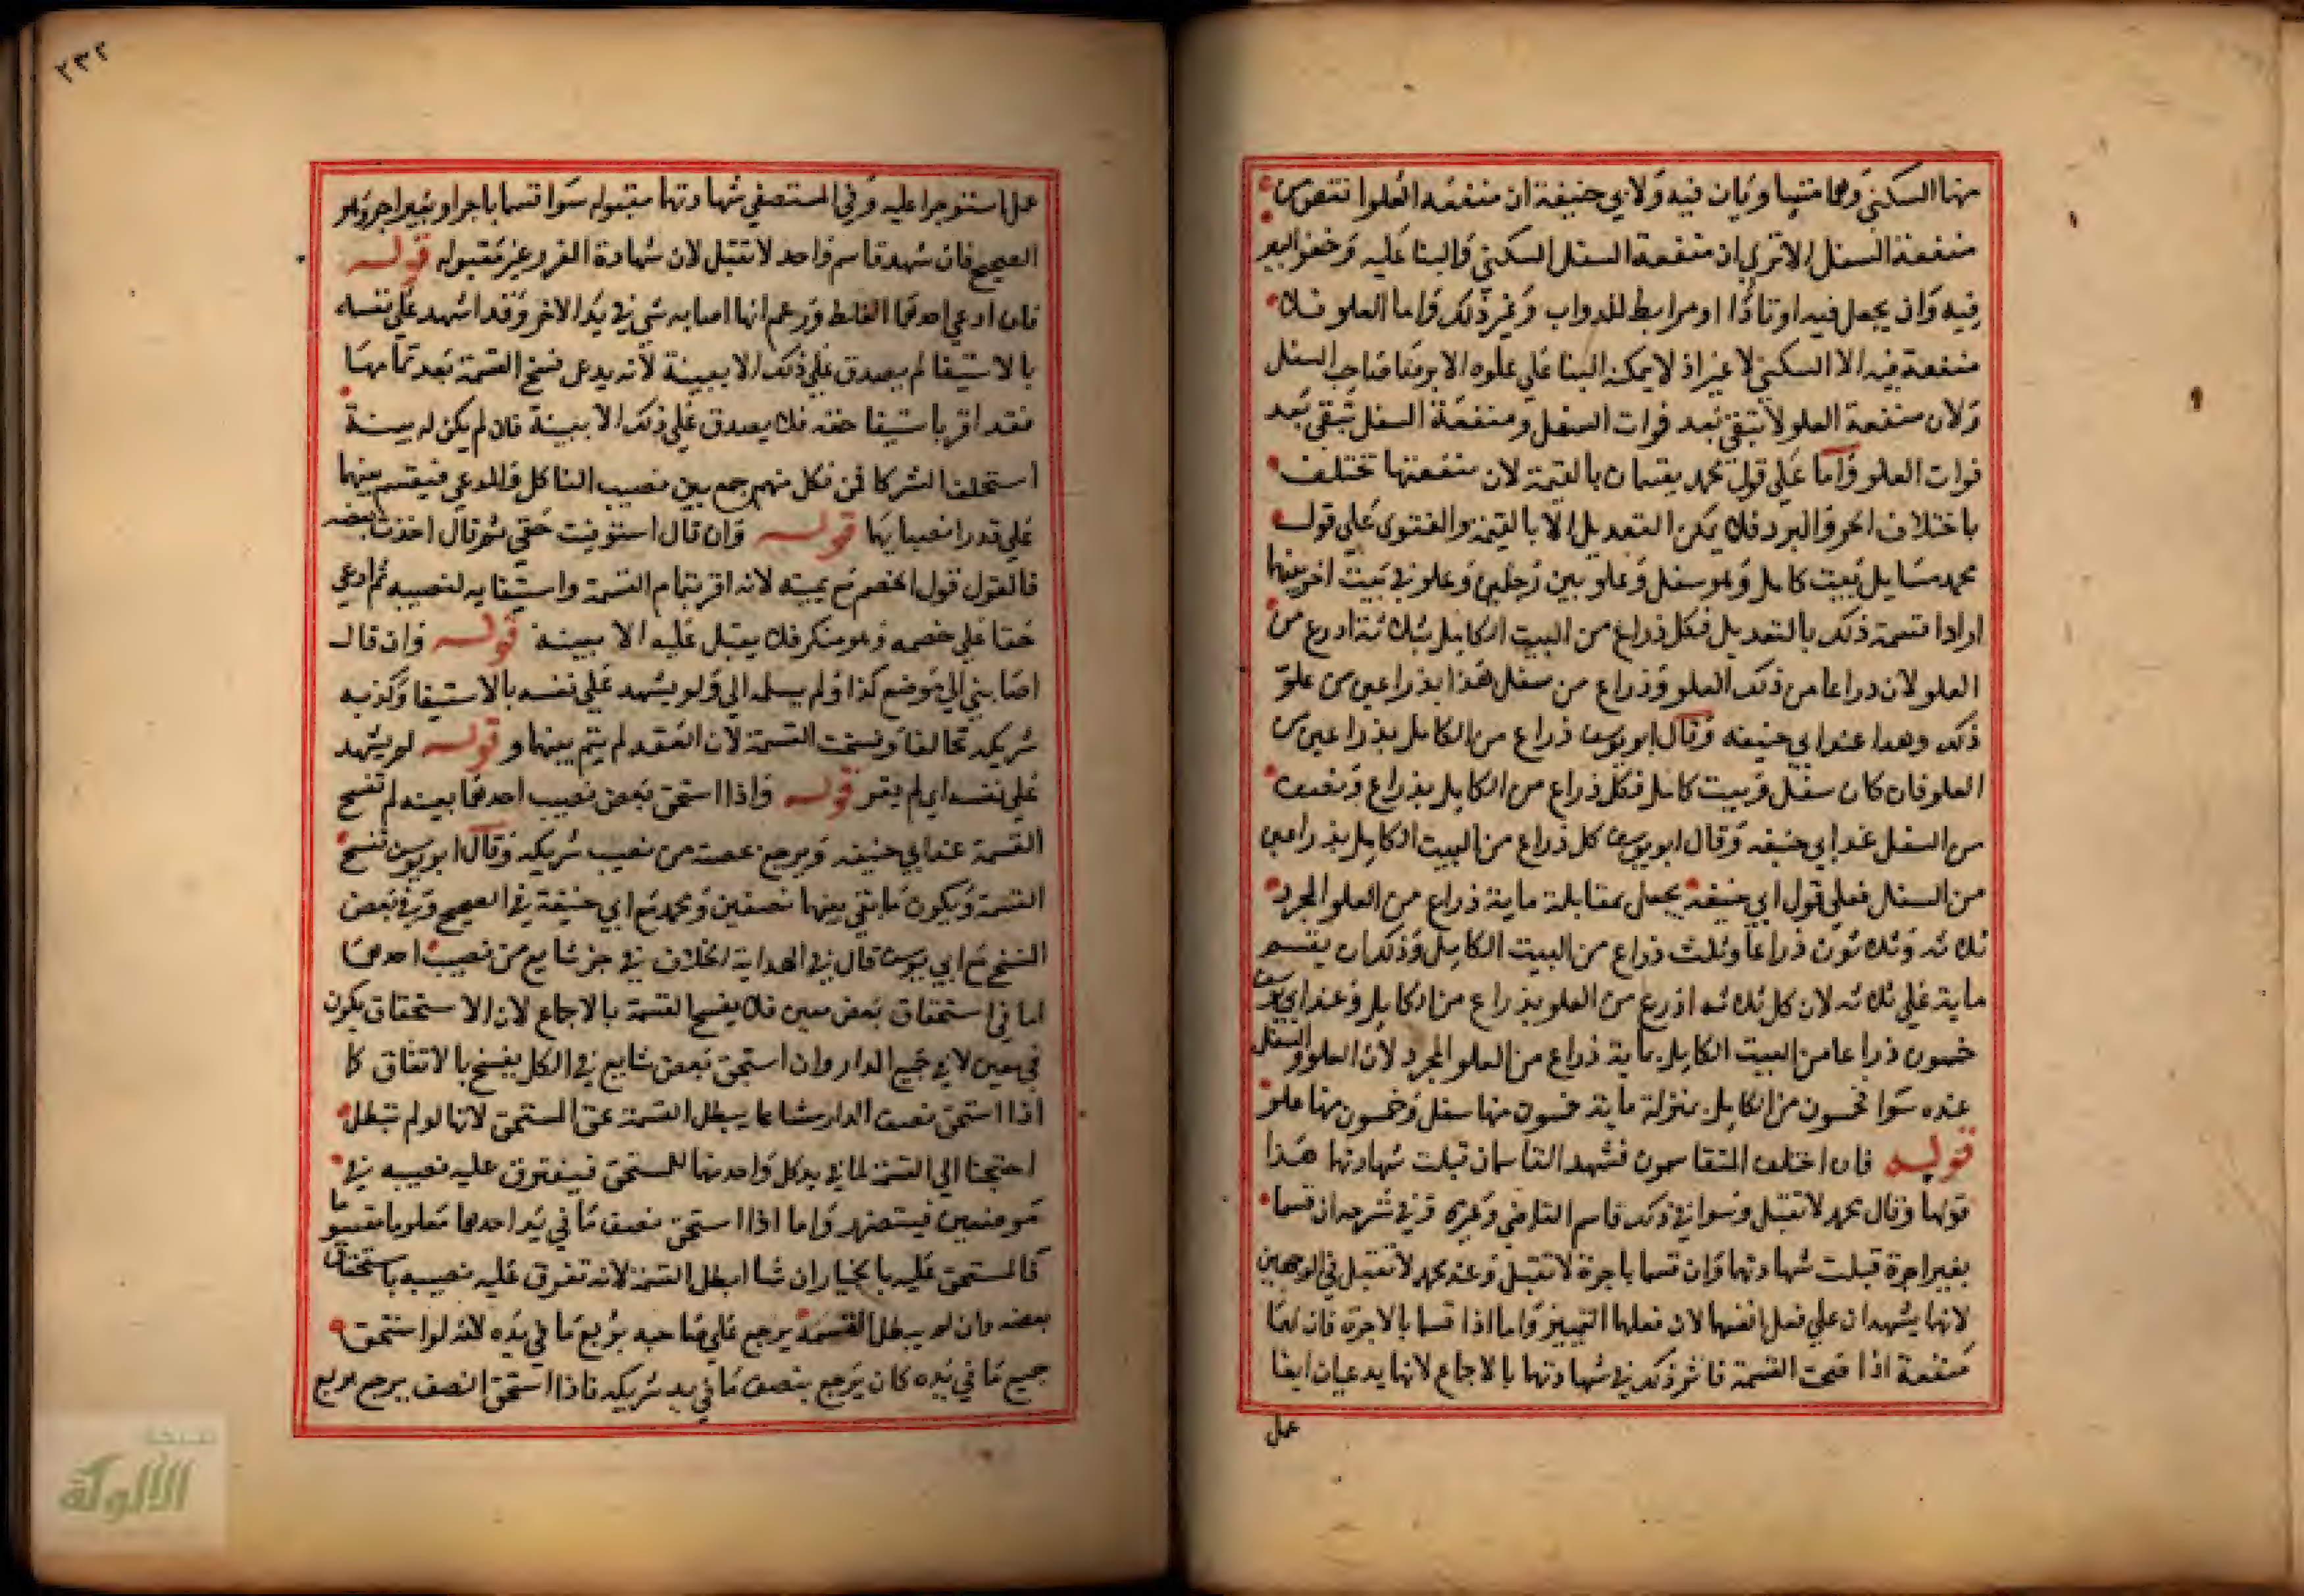 منها السكنى وهما متساويان فيه ولابي حنيفة ان منفعة العلو انقص من
منفعة السفل الا تري ان منفعة السفل السكني والبنا عليه وحفر البير
فيه وان يجعل فيه اوتادا او مرابط للدواب وغير ذلك واما العلو فلا
منفعة فيه الا السكني لا غير اذ لا يمكنه البنا علي علوه الا برضا صاحب السفل
ولان منفعة العلو لا تبقي بعد فوات السفل ومنفعة السفل تبقي بعد
فوات العلو واما علي قول محمد يقسمان بالقيمة لان منفعتها تختلف
باختلاف الحر والبرد فلا يمكن التعديل الا بالقيمة والفتوي علي قول
محمد مسايل بيت كامل وهو سفل وعلو بين رجلين وعلو في بيت اخر بينهما
ارادا قسمة ذلك بالتعديل فكل ذراع من البيت الكامل بثلاثة اذرع من
العلو لان ذراعا من ذلك العلو وذراع من سفل هذا بذراعين من علو
ذلك وهذا عند ابي حنيفه وقال ابو يوسف ذراع من الكامل بذراعين من
العلو فان كان سفل وبيت كامل فكل ذراع من الكامل بذراع ونصف
من السفل عند ابي حنيفه وقال ابو يوسف كل ذراع من البيت الكامل بذراعين
من السفل فعلي قول ابي حنيفة يجعل بمقابلة ماية ذراع من العلو المجرد
ثلاثه وثلاثون ذراعا وثلث ذراع من البيت الكامل وذلك ان يقسم
ماية علي ثلاثه لان كل ثلاثه اذرع من العلو بذراع من الكامل وعند ابي يوسف
خمسون ذراعا من البيت الكامل بماية ذراع من العلو المجرد لان العلو والسفل
عنده سوا فخمسون من الكامل بمنزلة ماية خمسون منها سفل وخمسون منها علو
قوله فان اختلف المتقاسمون فشهد القاسمان قبلت شهادتهما هذا
قولهما وقال محمد لا تقبل وسوا في ذلك قاسم القاضي وغيره وفي شرحه ان قسما
بغير اجرة قبلت شهادتهما وان قسما باجرة لا تقبل وعند محمد لا تقبل في الوجهين
لانهما يشهدان علي فعل انفسهما لان فعلهما التمييز واما اذا قسما بالاجرة فان لهما
منفعة اذا صحت القسمة فاثر ذلك في شهادتهما بالاجماع لانهما يدعيان ايفا
عمل
٢٣٢
عمل استؤجرا عليه وفي المستصفي شهادتهما مقبوله سوا قسما باجر او بغير اجر وهو
الصحيح فان شهد قاسم واحد لا تقبل لان شهادة الفرد غير مقبوله قوله
فان ادعي احدهما الغلط وزعم انها اصابه شي في يد الاخر وقد اشهد علي نفسه
بالاستيفا لم يصدق علي ذلك الا ببينة لانه يدعي فسخ القسمة بعد تمامها
فقد اقر باستيفا حقه فلا يصدق علي ذلك الا ببينة فان لم يكن له بينة
استحلف الشركا فمن نكل منهم جمع بين نصيب الناكل والمدعي فيقسم بينهما
علي قدر انصبايهما قوله وان قال استوفيت حقي ثم قال اخذت بعضه
فالقول قول الخصم مع يمينه لانه اقر بتمام القسمة واستيفايه لنصيبه ثم ادعي
حقا علي خصمه وهو منكر فلا يقبل عليه الا ببينة قوله وان قال
اصابني الي موضع كذا ولم يسلمه الي ولم يشهد علي نفسه بالاستيفا وكذبه
شريكه تحالفا وفسخت القسمة لان العقد لم يتم بينهما و قوله لم يشهد
علي نفسه اي لم يقر قوله واذا استحق بعض نصيب احدهما بعينه لم تفسخ
القسمة عند ابي حنيفه ويرجع بحصته من نصيب شريكه وقال ابو يوسف تفسخ
القسمة ويكون ما بقي بينهما نصفين ومحمد مع ابي حنيفة في الصحيح وفي بعض
النسخ مع ابي يوسف قال في الهداية الخلاف في جز شايع من نصيب احدهما
اما في استحقاق بعض معين فلا يفسخ القسمة بالاجماع لان الاستحقاق يكون
في معين لا في جميع الدار وان استحق بعض شايع في الكل يفسخ بالاتفاق كما
اذا استحق نصف الدار مشاعا يبطل القسمة عن المستحق لانها لو لم تبطل
احتجنا الي القسمة لما في يد كل واحد منهما للمستحق فيتفرق عليه نصيبه في
موضعين فيستضر واما اذا استحق نصف ما في يد احدهما معلوما مقسوما
فالمستحق عليه بالخيار ان شا ابطل القسمة لانه تفرق عليه نصيبه باستحقاق
بعضه وان لم يبطل القسمة يرجع علي صاحبه بربع ما في يده لانه لو استحق
جميع ما في يده كان يرجع بنصف ما في يد شريكه فاذا استحق النصف يرجع بربع
شبكة
الألوكة